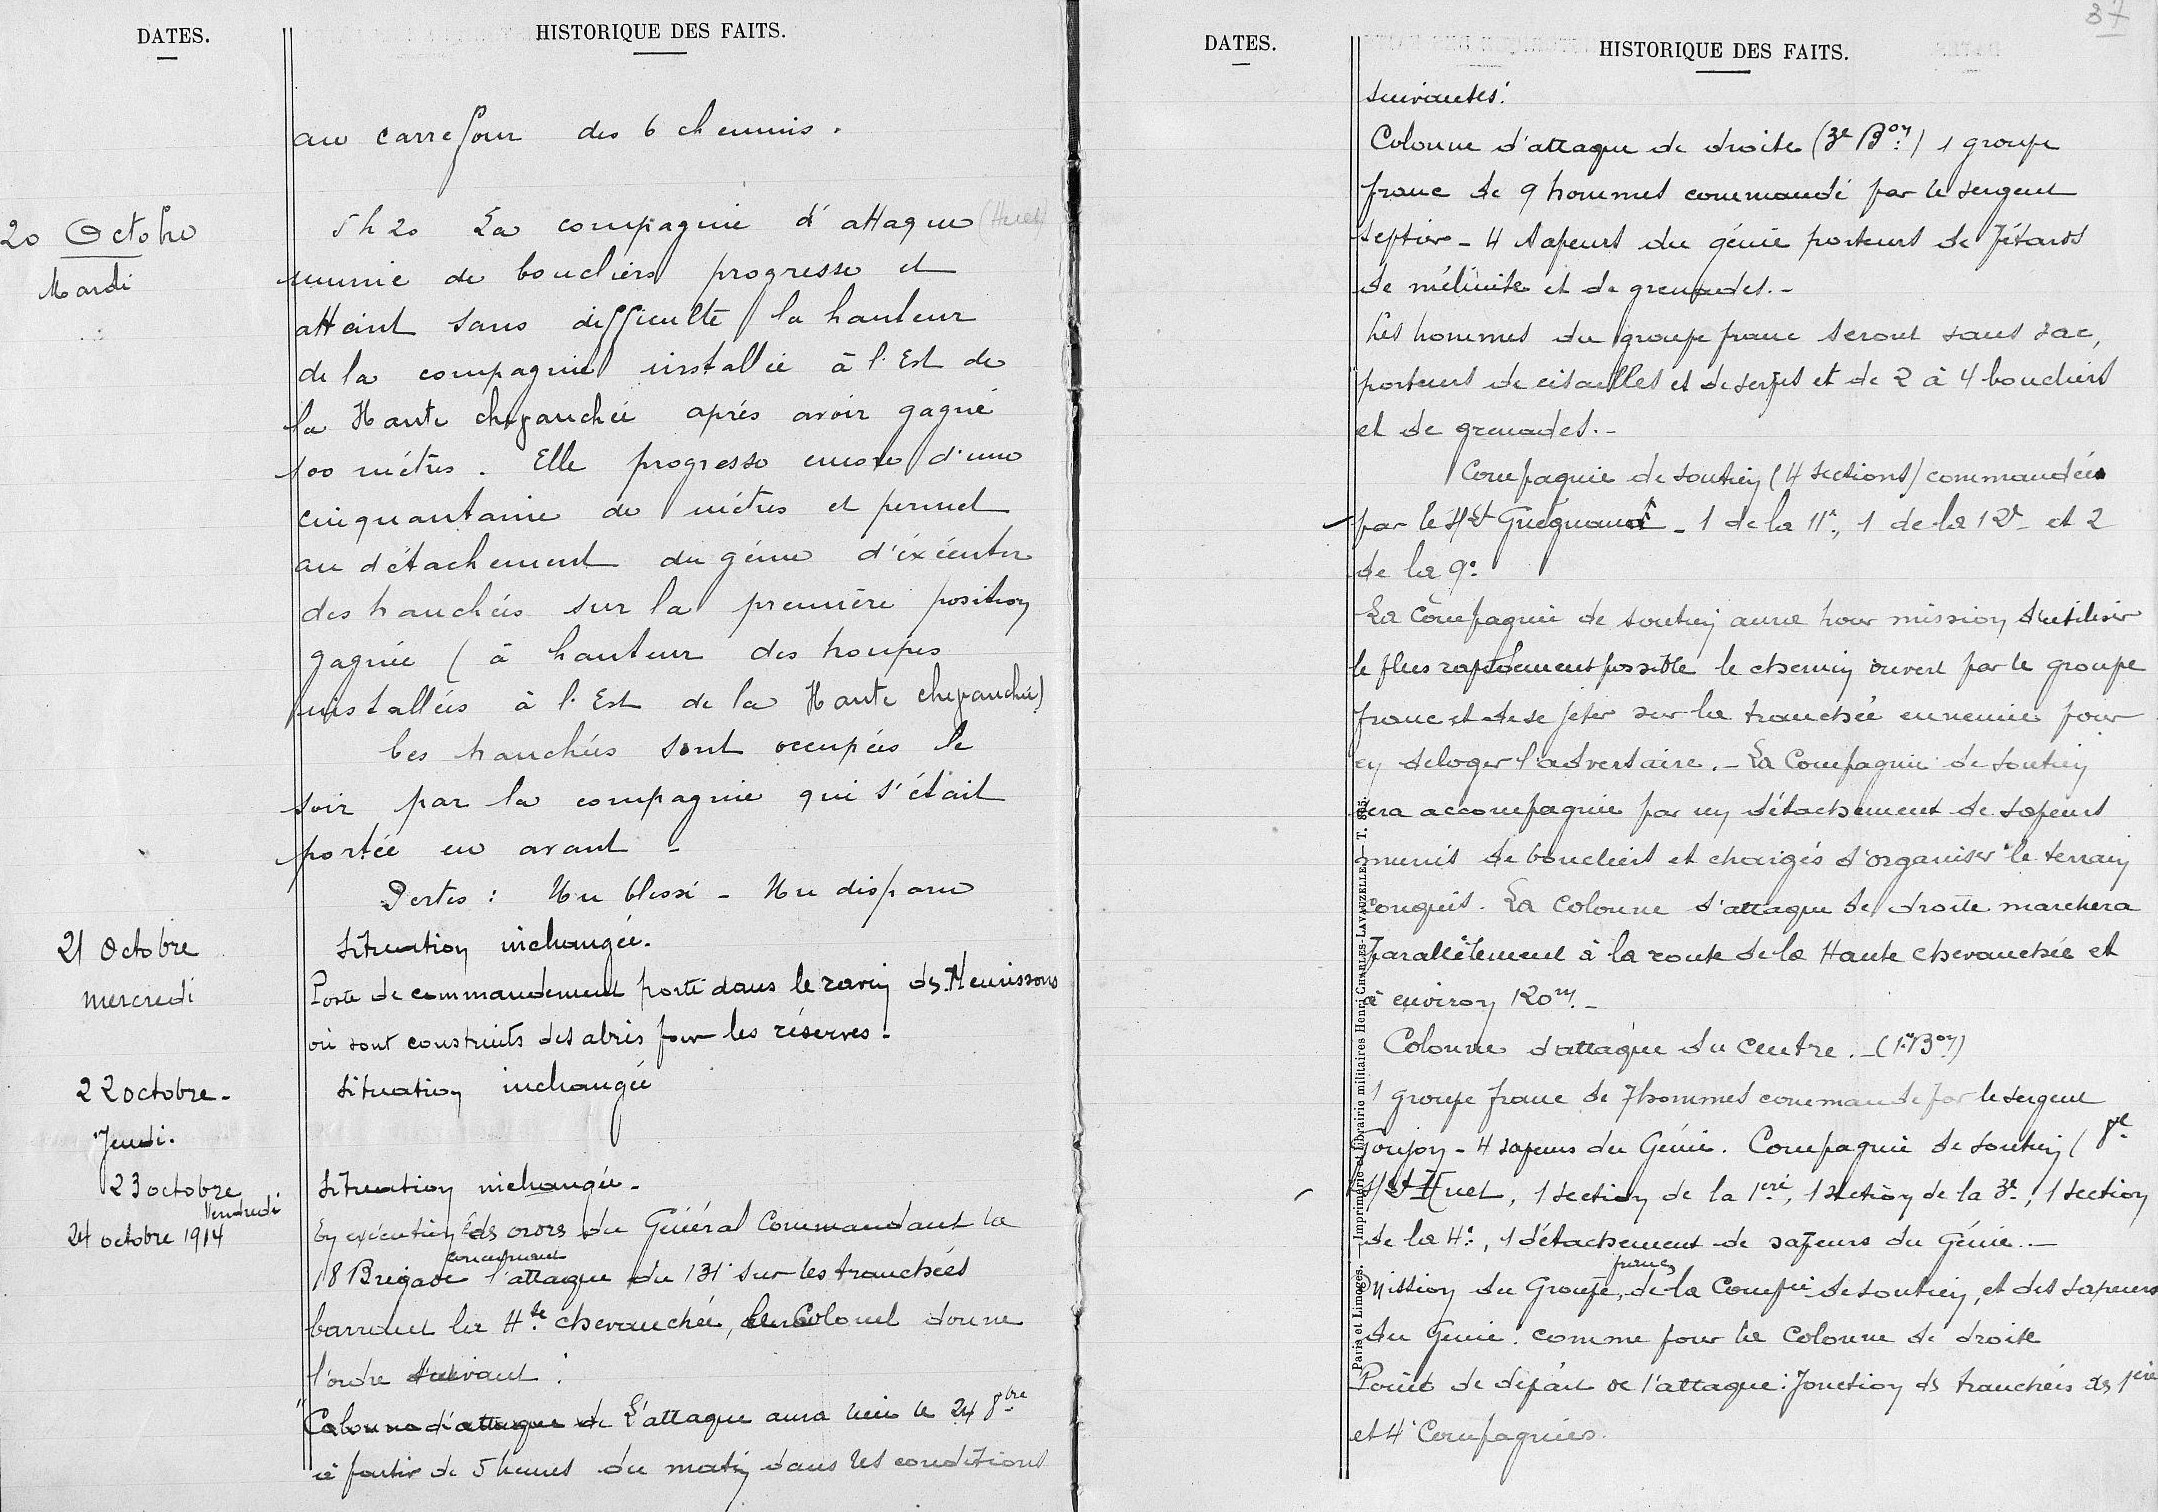 DATES.
HISTORIQUE DES FAITS.
au carrefour des 6 chemins.
20 Octobre
Mardi
5h20 La compagnie d'attaque (Huet)
munie de boucliers progresse et
atteint sans difficulté la hauteur
de la compagnie installée à l'Est de
la Haute chevauchée après avoir gagné
100 mètres. Elle progresse encore d'une
cinquantaine de mètres et permet
au détachement du génie d'éxécuter
des tranchées sur la première position
gagnée (à hauteur des troupes
installées à l'Est de la Haute chevauchée)
Ces tranchées sont occupées le
soir par la compagnie qui s'était
portée en avant -
Pertes : Un blessé - Un disparu
21 Octobre
mercredi
Situation inchangée.
Poste de commandement porté dans le ravin ds Meurissons
où sont construits des abris pour les réserves.
22 octobre.
Jeudi.
Situation inchangée
23 octobre
Vendredi
Situation inchangée.
24 octobre 1914
En exécution ds ordrs du Général Commandant la
18 Brigade concernant l'attaque du 131e sur les tranchées
barrant la Hte chevauchée, le Colonel donne
l'ordre suivant :
"Colonne d'attaque de L'attaque aura lieu le 24 8bre
à partir de 5 heures du matin dans les conditions
37
DATES.
HISTORIQUE DES FAITS.
suivantes:
Colonne d'attaque de droite (3e Bon) 1 groupe
franc de 9 hommes commandé par le sergent
Septier - 4 sapeurs du génie porteurs de Pétards
de mélinite et de grenades.-
Les hommes du groupe franc seront sans sac,
porteurs de cisailles et de serpes et de 2 à 4 boucliers
et de grenades.-
Compagnie de soutien (4 sections) commandée
par le Slt - 1 de la 11e, 1 de la 12e et 2
de la 9e
La Compagnie de soutien aura pour mission d'utiliser
le plus rapidement possible le chemin ouvert par le groupe
franc et de se jeter sur la tranchée ennemie pour
en déloger l'adversaire. - La Compagnie de soutien
sera accompagnée par un détachement de sapeurs
munis de boucliers et chargés d'organiser le terrain
conquis. La Colonne d'attaque de droite marchera
Parallèlement à la route de la Haute Chevauchée et
à environ 120m.-
Colonne d'attaque du Centre. - (1er Bon)
1 groupe franc de 7 hommes commandé par le sergent
Goujon - 4 sapeurs du Génie. Compagnie de soutien (8e
S/Lt Huet, 1 section de la 1ère, 1 section de la 3e, 1 section
de la 4e, 1 détachement de sapeurs du Génie.-
Mission du Groupe franc, de la Compie de soutien, et des sapeurs
du Génie. comme pour la Colonne de droite
Point de départ de l'attaque : Jonction ds tranchées ds 1ère
et 4e Compagnies.
Paris et Limoges. — Imprimerie et Librairie militaires Henri CHARLES-LAVAUZELLE. — T. 805.